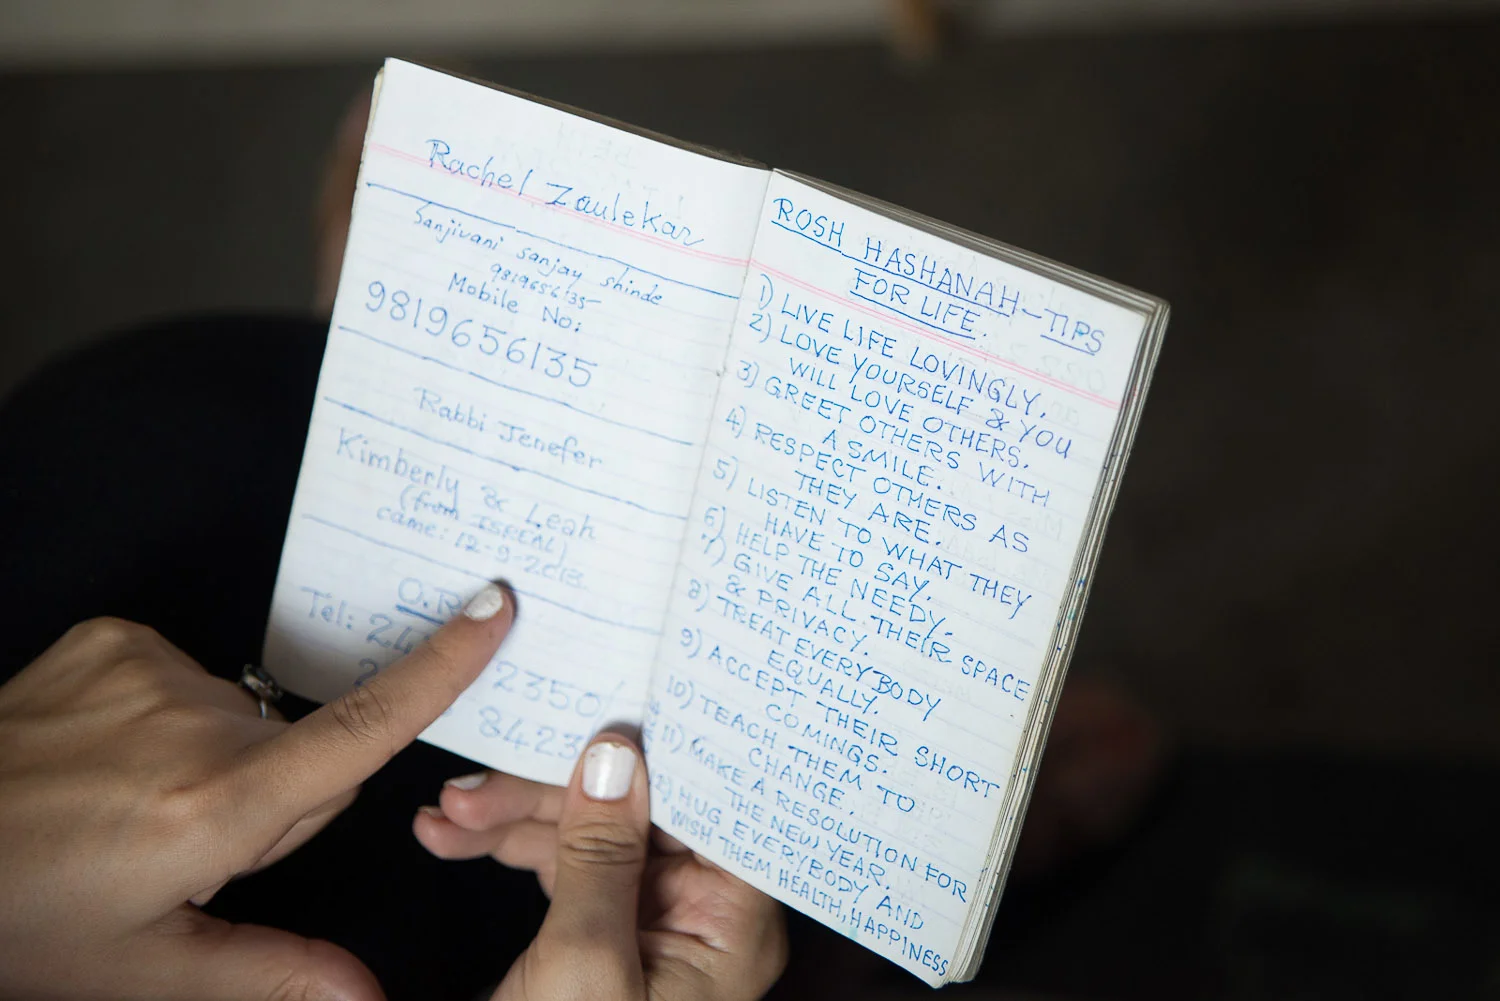 Rachel Zaulekar
Sanjivani Sanjay Shinde
9819656135
Mobile No:
9819656135
Rabbi Jenefer
Kimberly & Leah
(from ISREAL)
came: 12-9-2013
Tel:
2350
8423
ROSH HASHANAH-TIPS
FOR LIFE.
1) LIVE LIFE LOVINGLY.
2) LOVE YOURSELF & YOU
WILL LOVE OTHERS.
3) GREET OTHERS WITH
A SMILE.
4) RESPECT OTHERS AS
THEY ARE.
5) LISTEN TO WHAT THEY
HAVE TO SAY.
6) HELP THE NEEDY.
7) GIVE ALL THEIR SPACE
& PRIVACY.
8) TREAT EVERYBODY
EQUALLY.
9) ACCEPT THEIR SHORT
COMINGS.
10) TEACH THEM TO
CHANGE.
11) MAKE A RESOLUTION FOR
THE NEW YEAR.
12) HUG EVERYBODY AND
WISH THEM HEALTH, HAPPINESS